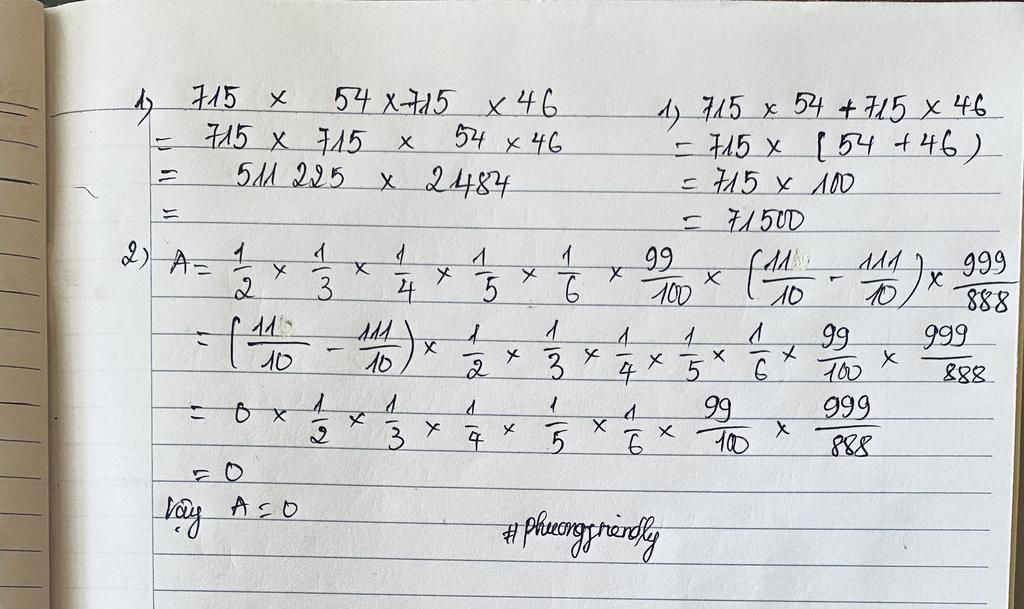 1) 715 × 54 × 715 × 46
= 715 × 715 × 54 × 46
= 511 225 × 2484
=
1) 715 × 54 + 715 × 46
= 715 × (54 + 46)
= 715 × 100
= 71500
2) A = 1/2 × 1/3 × 1/4 × 1/5 × 1/6 × 99/100 × (11/10 − 111/10) × 999/888
= (11/10 − 111/10) × 1/2 × 1/3 × 1/4 × 1/5 × 1/6 × 99/100 × 999/888
= 0 × 1/2 × 1/3 × 1/4 × 1/5 × 1/6 × 99/100 × 999/888
= 0
Vậy A = 0
#phuongfriendly